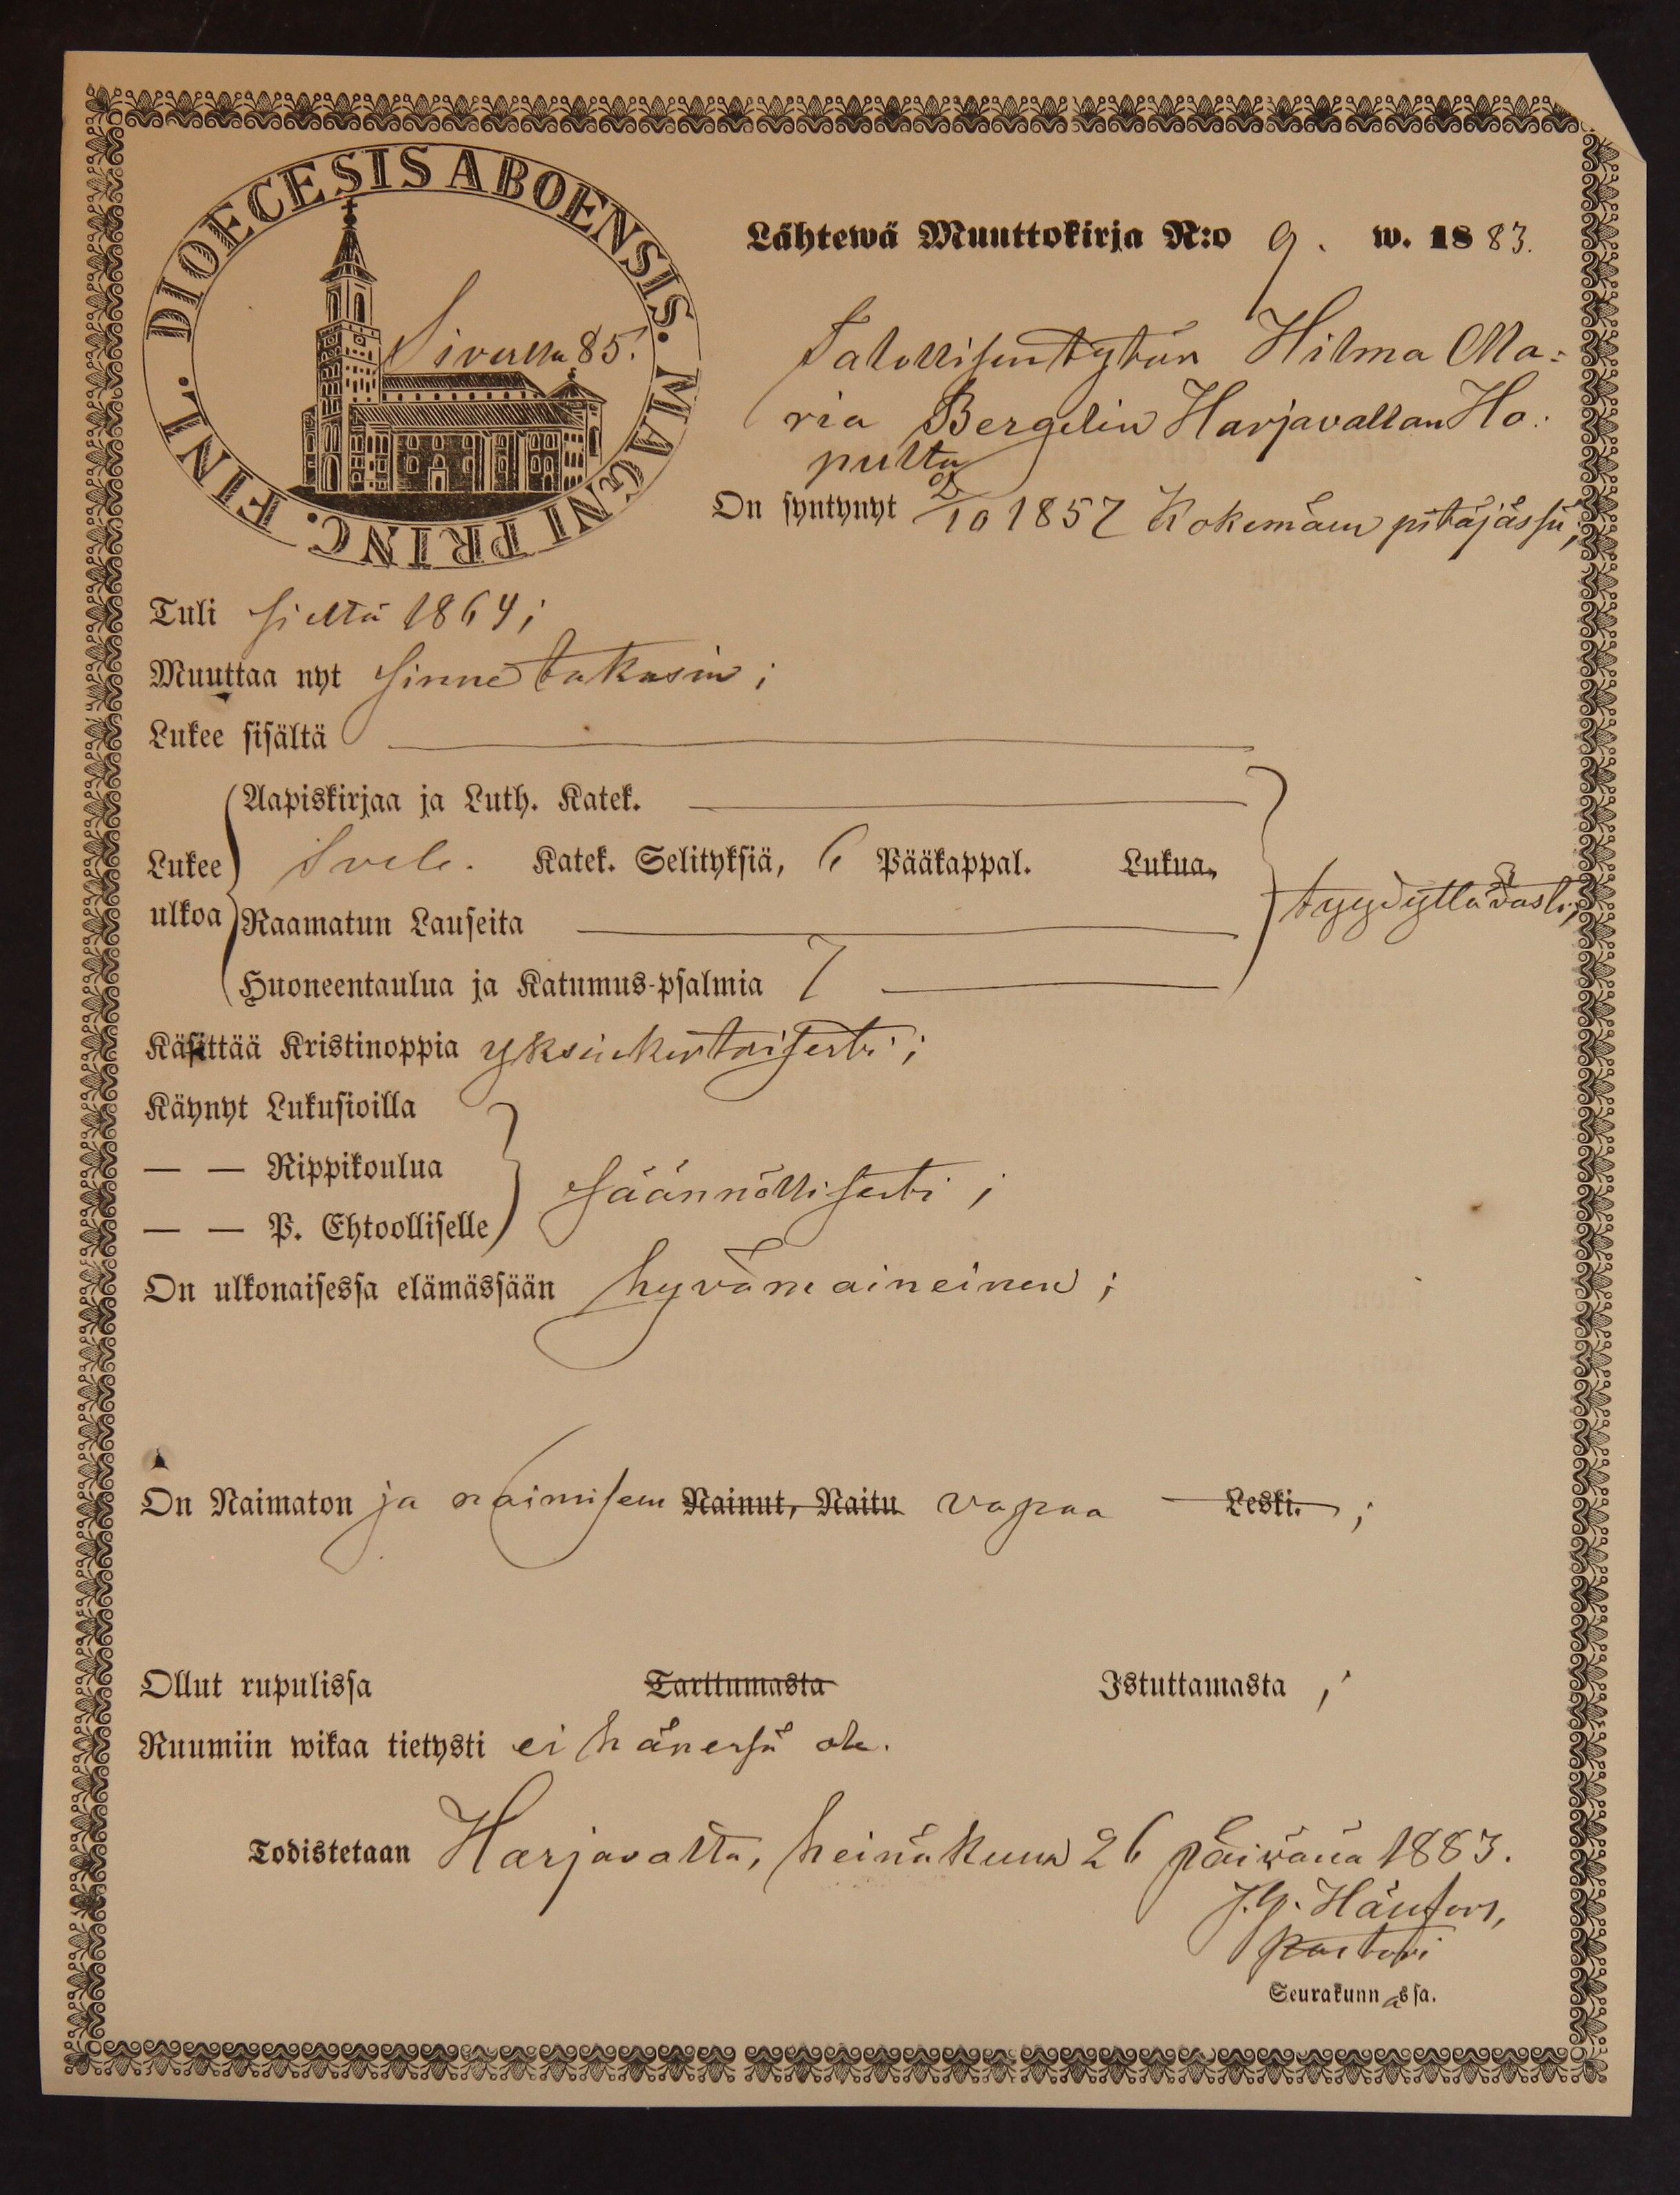 DIOECESIS ABOENSIS. MAGNI PRINC. FINL.
Sivulla 85.
Lähtewä Muuttokirja N:o 9. w. 1883.
Talollisentytön Hilma Ma=
ria Bergelin Harjavallan Ha=
pulta
On syntynyt 2/10 1857 Kokemäen pitäjässä;
Tuli sieltä 1864;
Muuttaa nyt sinne takasin;
Lukee sisältä
Aapiskirjaa ja Luth. Katek.
Lukee Svel. Katek. Selityksiä, 6 Pääkappal. Lukua,
tyydyttävästi;
ulkoa Raamatun Lauseita
Huoneentaulua ja Katumus-psalmia 7
Käsittää Kristinoppia yksinkertaisesti;
Käynyt Lukusioilla
— — Rippikoulua
säännöllisesti;
— — P. Ehtoolliselle
On ulkonaisessa elämässään hyvämaineinen;
On Naimaton ja naimiseen Nainut, Naitu vapaa Leski.;
Ollut rupulissa Tarttumasta Istuttamasta;
Ruumiin wikaa tietysti ei hänessä ole.
Todistetaan Harjavalta, heinäkuun 26 päivänä 1883.
pastori
Seurakunnassa.